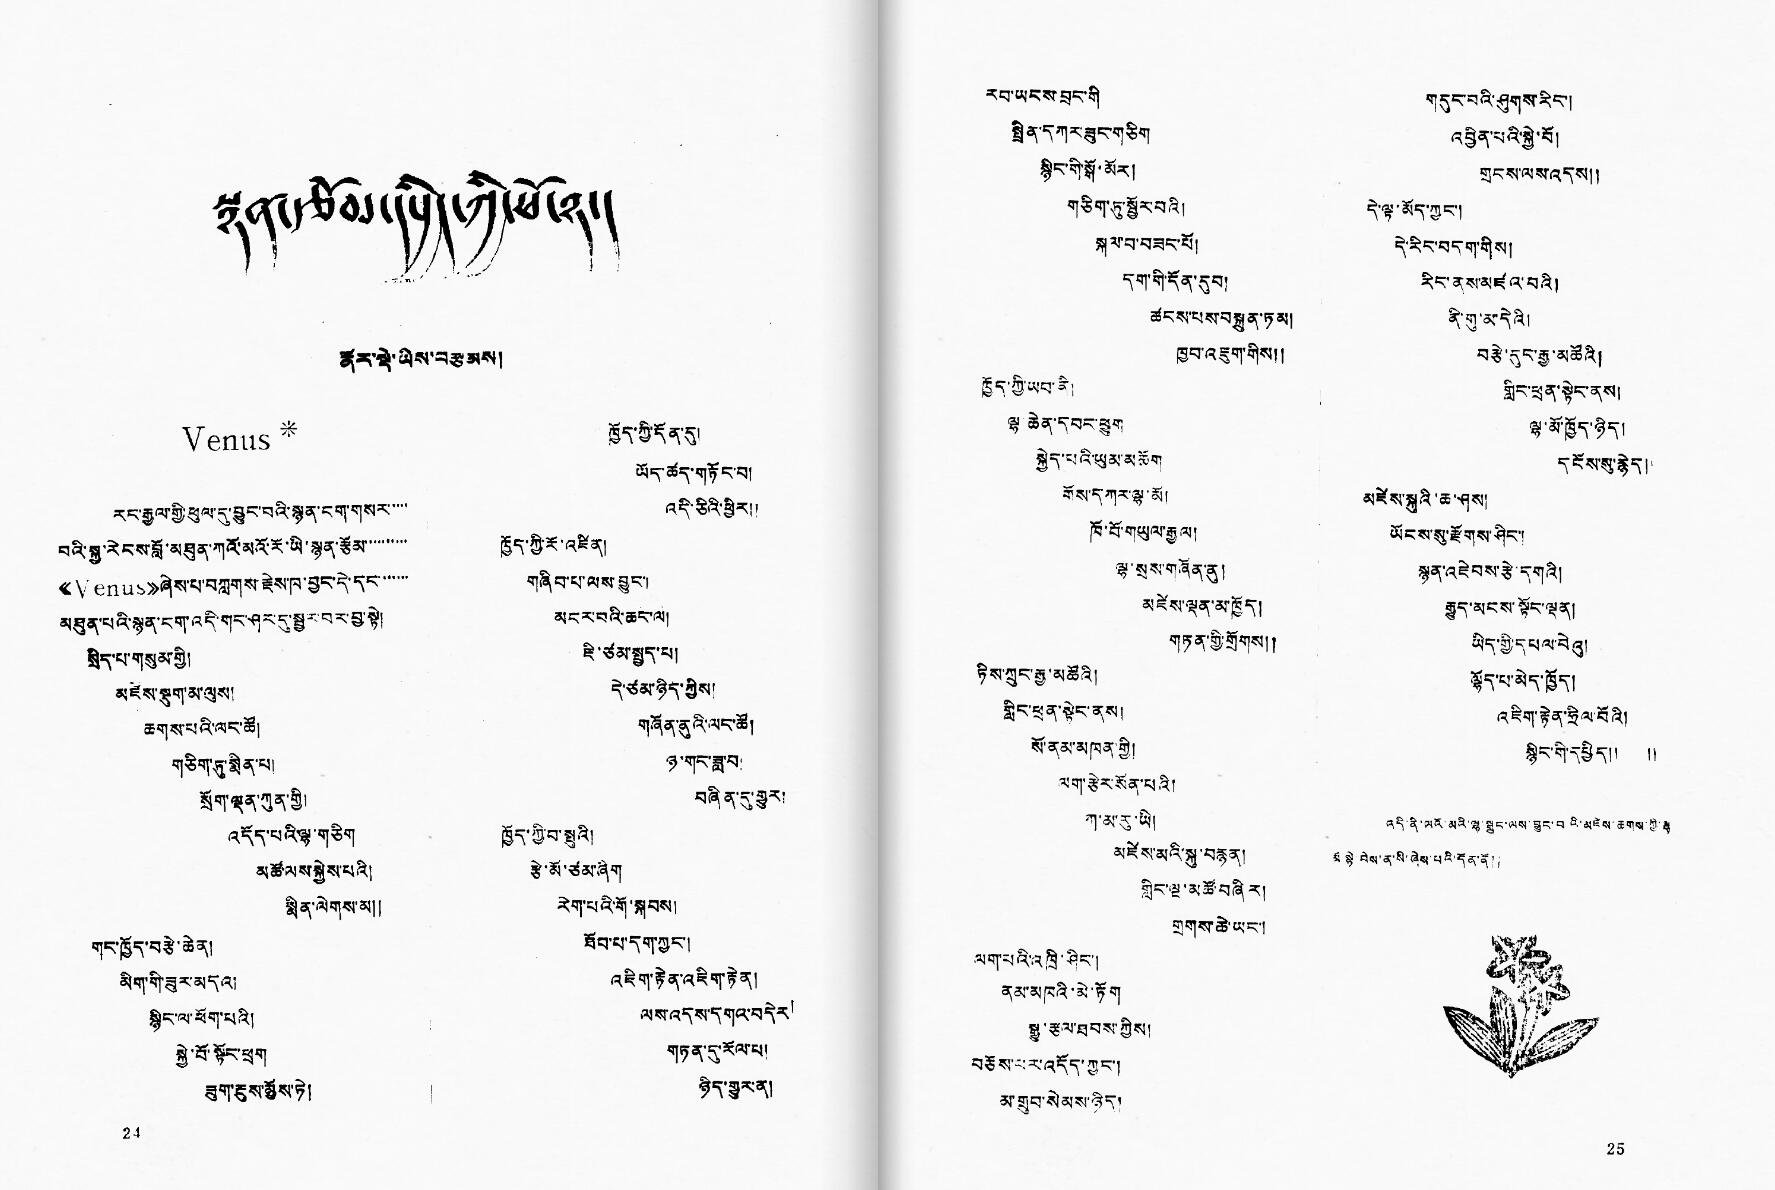 ནོར་སྡེ་ཡིས་བརྩམས།
Venus *
རང་རྒྱལ་གྱི་ཕུལ་དུ་བྱུང་བའི་སྙན་ངག་གསར་····
བའི་སྐྱ་རེངས་བློ་མཐུན་ཀའོ་མའོ་རོ་ཡི་སྙན་རྩོམ་········
《Venus》ཞེས་པ་བཀླགས་རྗེས་ཁ་བྱང་དེ་དང་······
མཐུན་པའི་སྙན་ངག་འདི་གང་ཤར་དུ་སྦྱར་བར་བྱ་སྟེ།
སྲིད་པ་གསུམ་གྱི།
མཛེས་སྡུག་མ་ལུས།
ཆགས་པའི་ལང་ཚོ།
གཅིག་ཏུ་སྨིན་པ།
སྲོག་ལྡན་ཀུན་གྱི།
འདོད་པའི་ལྷ་གཅིག
མཚོ་ལས་སྐྱེས་པའི།
སྨིན་ལེགས་མ།།
གང་ཁྱོད་བརྩེ་ཆེན།
མིག་གི་ཟུར་མདའ།
སྙིང་ལ་ཕོག་པའི།
སྐྱེ་བོ་སྟོང་ཕྲག
ཟུག་རྔུས་སྨྱོས་ཏེ།
24
ཁྱོད་ཀྱི་དོན་དུ།
ཡོད་ཚད་གཏོང་བ།
འདི་ཅིའི་ཕྱིར།།
ཁྱོད་ཀྱི་རོ་འཛིན།
གཞིབ་པ་ལས་བྱུང་།
མངར་བའི་ཆང་ལ།
ཇི་ཙམ་སྤྱད་པ།
དེ་ཙམ་ཉིད་ཀྱིས།
གཞོན་ནུའི་ལང་ཚོ།
ཉ་གང་ཟླ་བ།
བཞིན་དུ་གྱུར།
ཁྱོད་ཀྱི་བ་སྤུའི།
རྩེ་མོ་ཙམ་ཞིག
རེག་པའི་གོ་སྐབས།
ཐོབ་པ་དག་ཀྱང་།
འཇིག་རྟེན་འཇིག་རྟེན།
ལས་འདས་དགའ་བདེར།
གཏན་དུ་རོལ་པ།
ཉིད་གྱུར་ན།
རབ་ཡངས་བྲང་གི
སྤྲིན་དཀར་ཟུང་གཅིག
སྙིང་གི་སྒོ་མོར།
གཅིག་ཏུ་སྦྱོར་བའི།
སྐལ་བ་བཟང་པོ།
དག་གི་དོན་དུབ།
ཚངས་པས་བསྐྲུན་ཏམ།
ཁྱབ་འཇུག་གིས།།
ཁྱོད་ཀྱི་ཡབ་ནི།
ལྷ་ཆེན་དབང་ཕྱུག
སྐྱེད་པའི་ཡུམ་མཆོག
གོས་དཀར་ལྷ་མོ།
ཁོ་བོ་གཡུལ་རྒྱལ།
ལྷ་སྲས་གཞོན་ནུ།
མཛེས་ལྡན་མ་ཁྱོད།
གཏན་གྱི་གྲོགས།།
ཏིས་ཀྲུང་རྒྱ་མཚོའི།
གླིང་ཕྲན་སྟེང་ནས།
སོ་ནམ་མཁན་གྱི།
ལག་རྩེར་སོན་པའི།
ཀ་མ་རུ་ཡི།
མཛེས་མའི་སྐུ་བརྙན།
གླིང་ལྔ་མཚོ་བཞིར།
གྲགས་ཆེ་ཡང་།
ལག་པའི་འཁྲི་ཤིང་།
ནམ་མཁའི་མེ་ཏོག
སྒྱུ་རྩལ་ཐབས་ཀྱིས།
བཅོས་པར་འདོད་ཀྱང་།
མ་གྲུབ་སེམས་ཉིད།
གདུང་བའི་ཤུགས་རིང་།
འབྱིན་པའི་སྐྱེ་བོ།
གྲངས་ལས་འདས།།
དེ་ལྟ་མོད་ཀྱང་།
དེ་རིང་བདག་གིས།
རིང་ནས་མཛའ་བའི།
ནི་གུ་མ་དེའི།
བརྩེ་དུང་རྒྱ་མཚོའི།
གླིང་ཕྲན་སྟེང་ནས།
ལྷ་མོ་ཁྱོད་ཉིད།
དངོས་སུ་རྙེད།
མཛེས་སྐུའི་ཆ་ཤས།
ཡོངས་སུ་རྫོགས་ཤིང་།
སྙན་འཇེབས་རྩེ་དགའི།
རྒྱུད་མངས་སྟོང་ལྡན།
ཡིད་ཀྱི་དཔལ་བེའུ།
ལྷོད་པ་མེད་ཁྱོད།
འཇིག་རྟེན་ཧྲིལ་བོའི།
སྙིང་གི་དཔྱིད།། །།
འདི་ནི་ལའོ་མའི་ལྷ་སྒྲུང་ལས་བྱུང་བའི་མཛེས་ཆགས་ཀྱི་ལྷ
མོ་སྟེ་ཝེས་ན་སི་ཞེས་པའི་དོན་ནོ།།
25